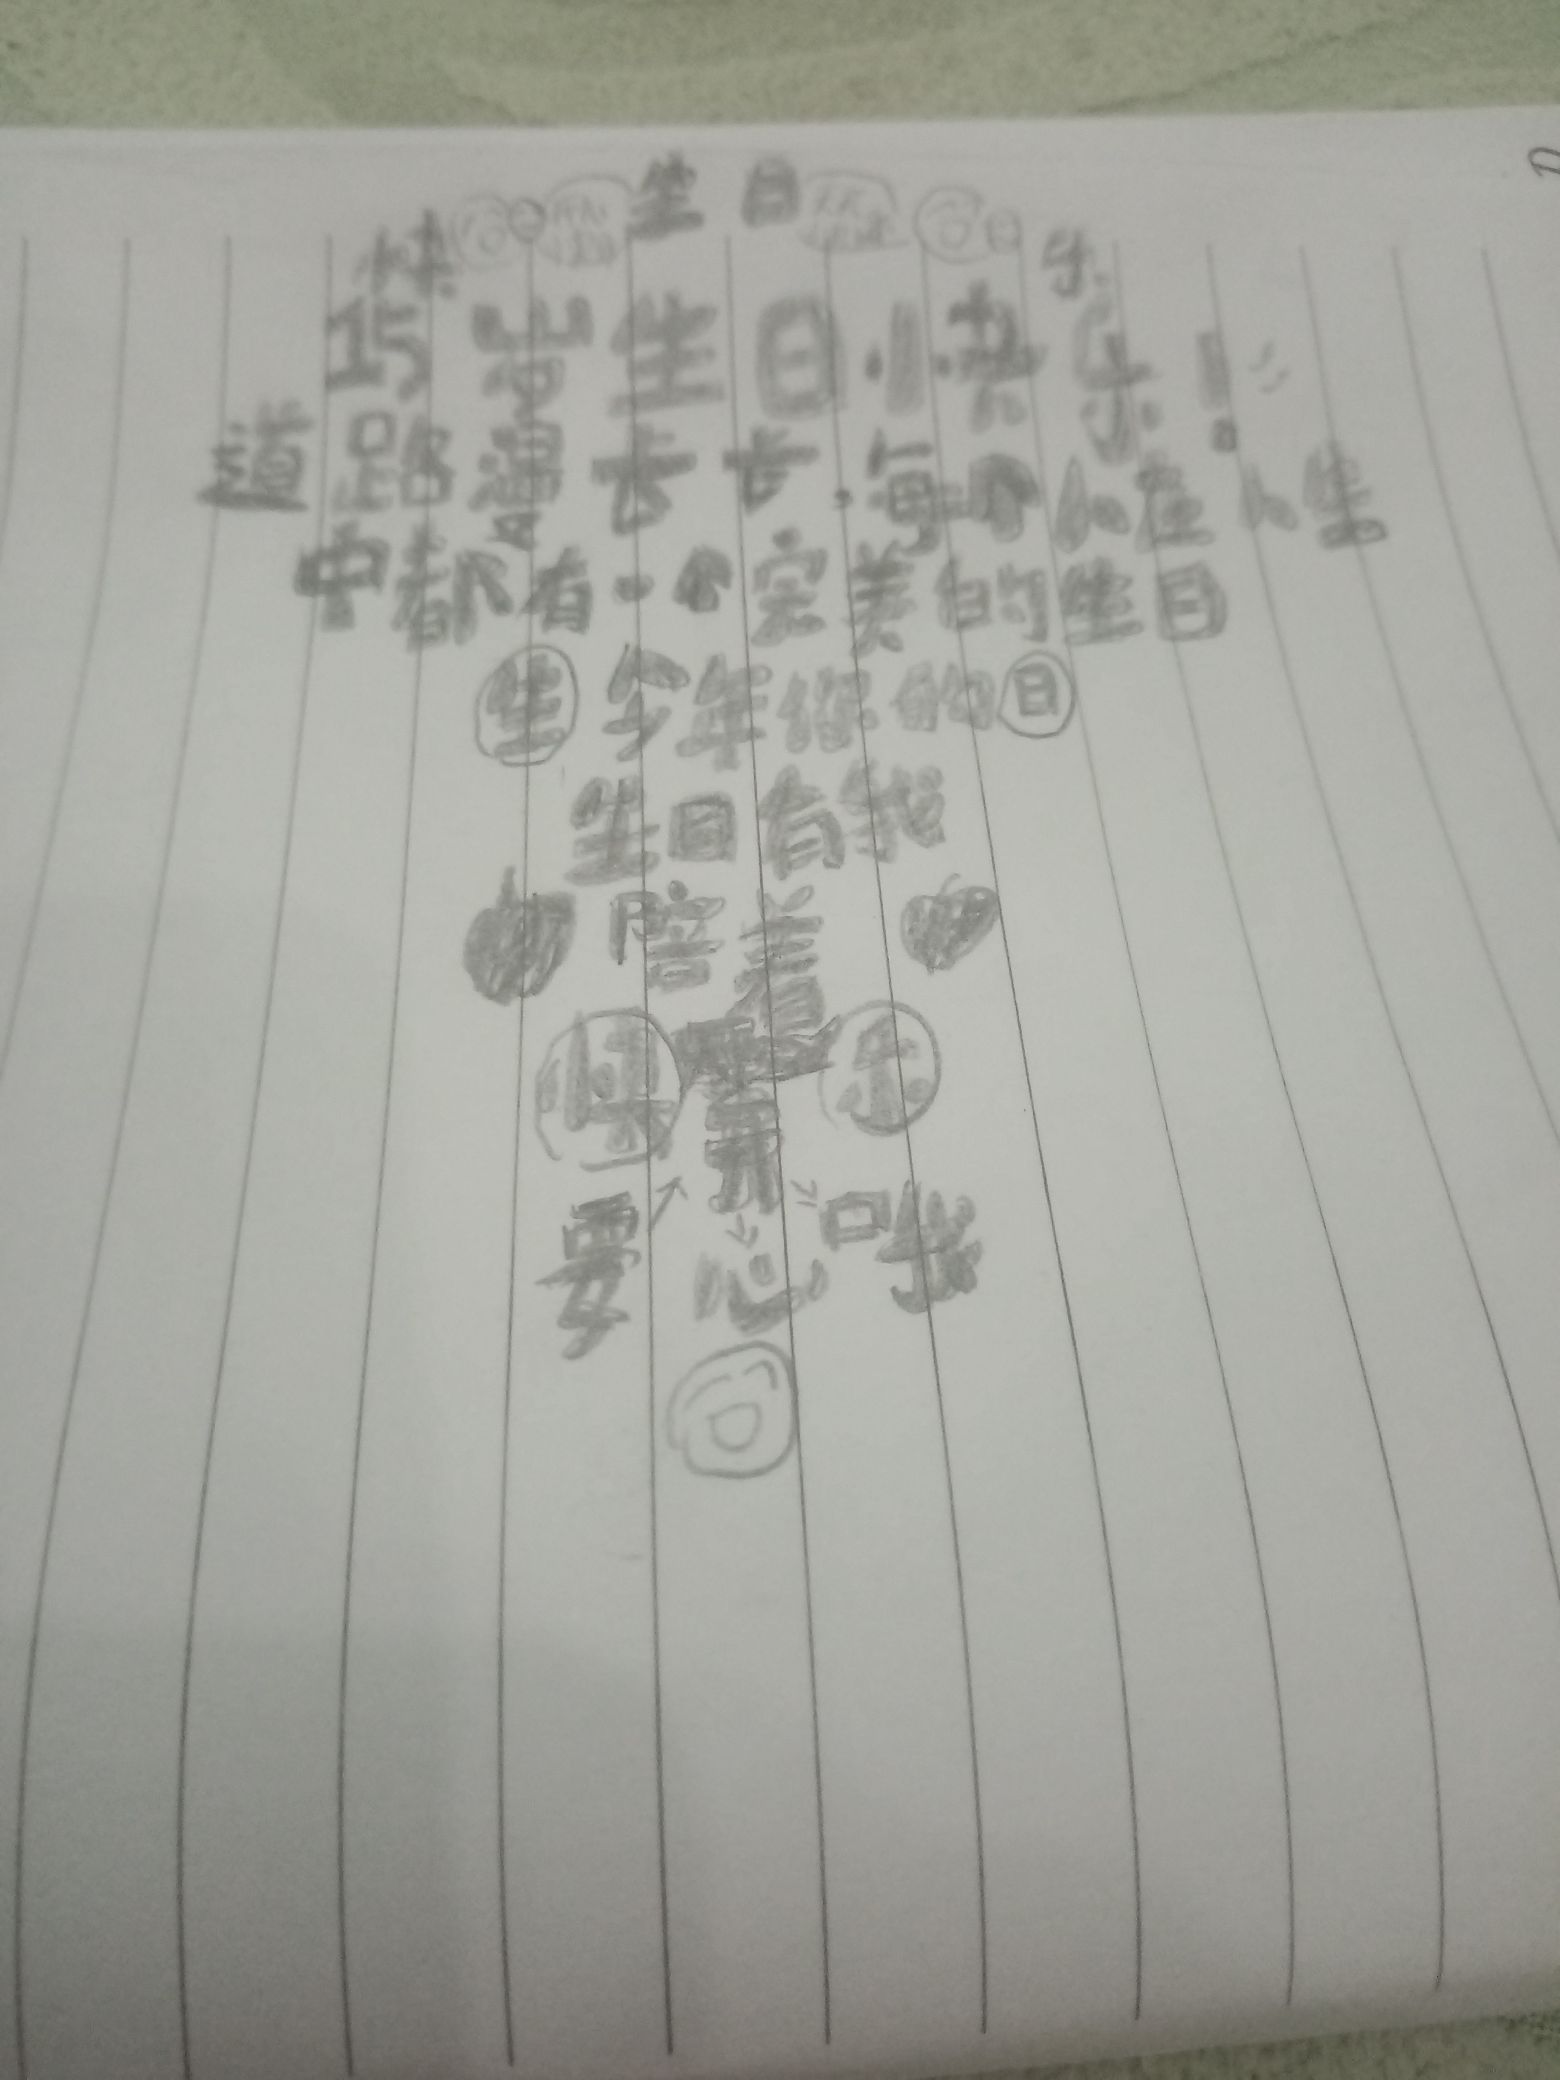 生日
快 乐
巧 生日快乐！
道路漫长长，每个人在人生
中都有一个完美的生日
生 今年你的 日
生日有我
陪着
快 乐
要 心 哦